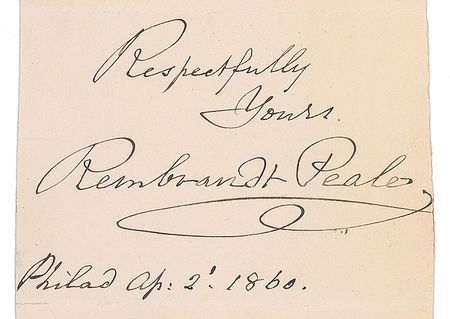 Respectfully
Yours.
Rembrandt Peale
Philad Ap: 2! 1860.